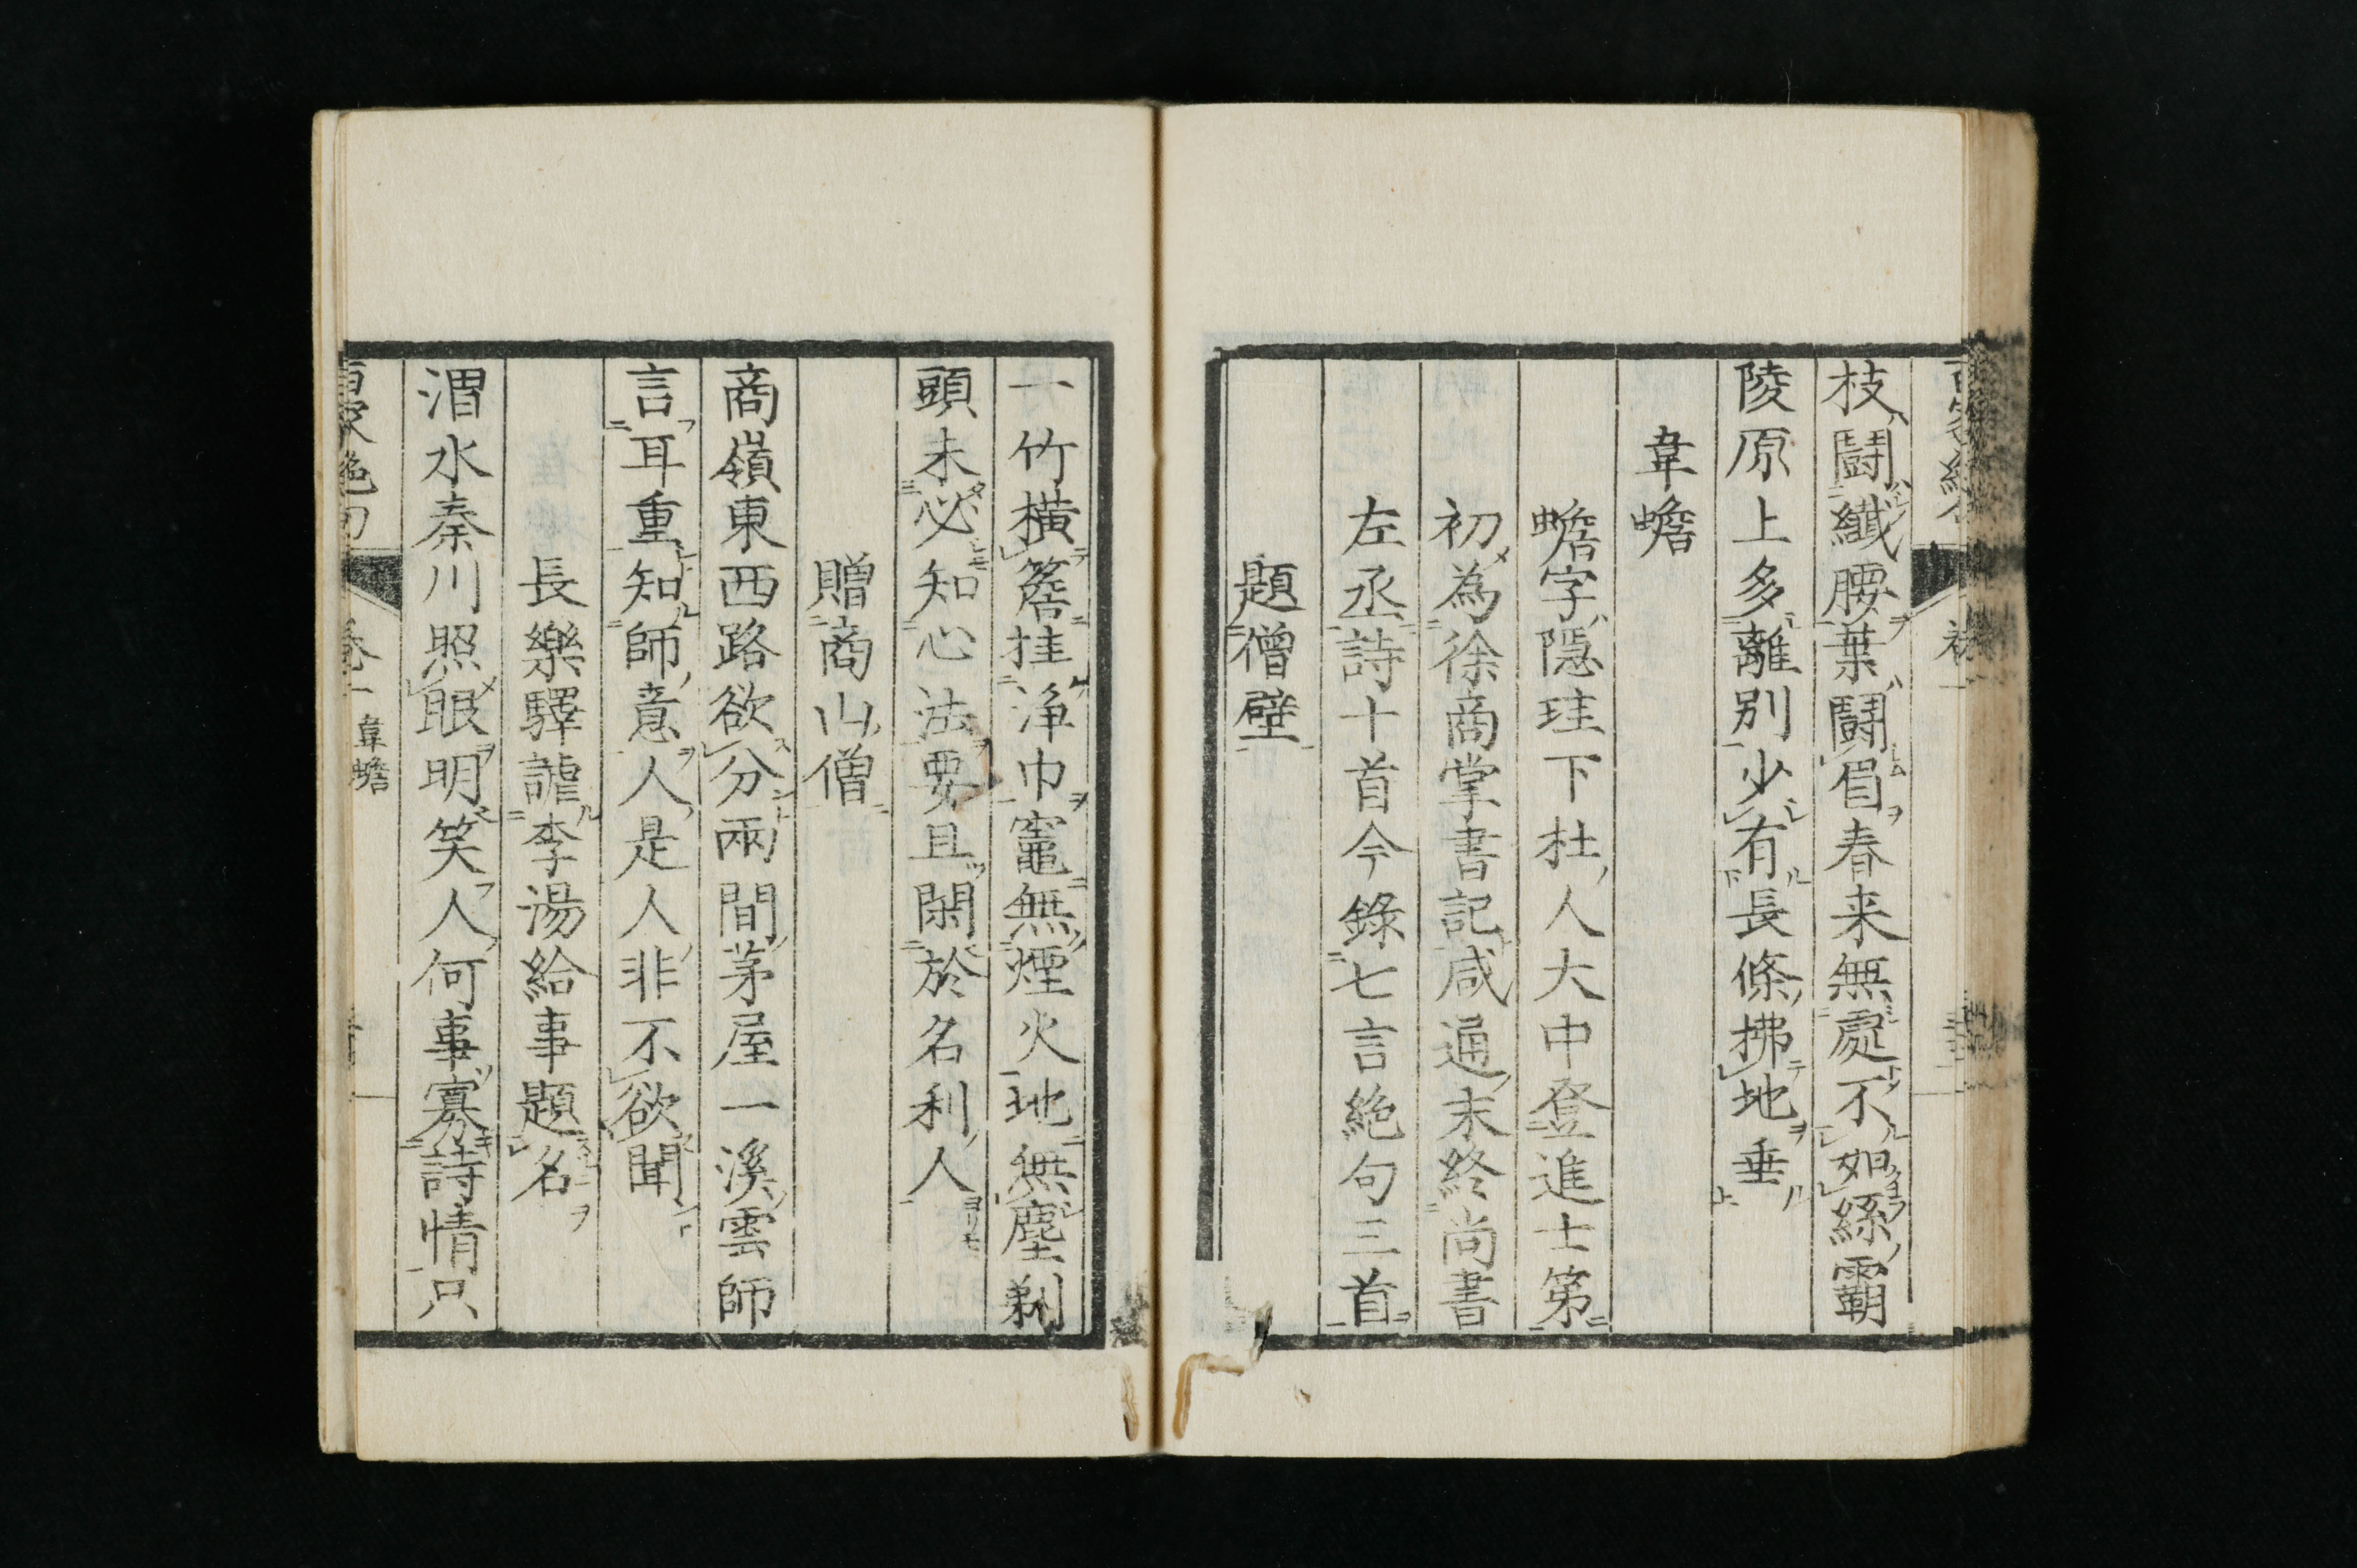 枝鬪纖腰葉鬪眉春来無處不如絲霸
陵原上多離別少有長條拂地垂
韋蟾
蟾字隱珪下杜人大中登進士第
初為徐商掌書記咸通末終尚書
左丞詩十首今錄七言絶句三首
題僧壁
一竹橫簷挂淨巾竈無煙火地無塵剃
頭未必知心法要且閑於名利人
贈商山僧
商嶺東西路欲分兩間茅屋一溪雲師
言耳重知師意人是人非不欲聞
長樂驛謔李湯給事題名
渭水秦川照眼明笑人何事寡詩情只
百家絶句
卷一 韋蟾